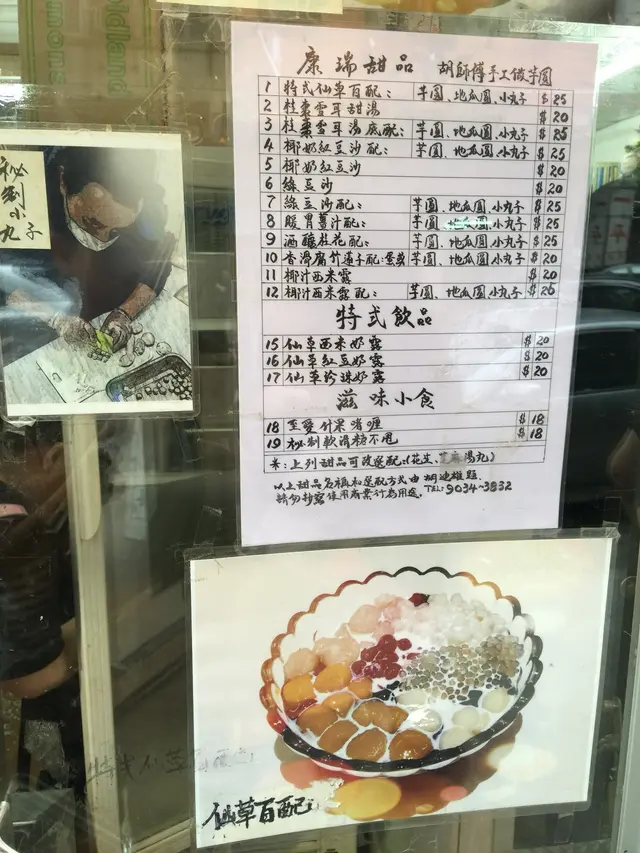 康瑞甜品 胡師傅手工做芋圓
1 特式仙草百配: 芋圓、地瓜圓、小丸子 $25
2 桂棗雪耳甜湯 $20
3 桂棗雪耳湯底配: 芋圓、地瓜圓、小丸子 $25
4 椰奶紅豆沙配: 芋圓、地瓜圓、小丸子 $25
5 椰奶紅豆沙 $20
6 綠豆沙 $20
7 綠豆沙配: 芋圓、地瓜圓、小丸子 $25
8 暖胃薑汁配: 芋圓、地瓜圓、小丸子 $25
9 酒釀桂花配: 芋圓、地瓜圓、小丸子 $25
10 香滑腐竹蓮子配:蛋 芋圓、地瓜圓、小丸子 $20
11 椰汁西米露 $20
12 椰汁西米露配: 芋圓、地瓜圓、小丸子 $26
特式飲品
15 仙草西米奶露 $20
16 仙草紅豆奶露 $20
17 仙草珍珠奶露 $20
滋味小食
18 至愛什果啫喱 $18
19 秘制軟滑糖不甩 $18
*:上列甜品可改選配:(花生、芝麻湯丸)
以上甜品名稱和選配方式由胡迪雄題.
請勿抄寫使用商業行為用途. TEL:9034-3832
秘制小丸子
仙草百配